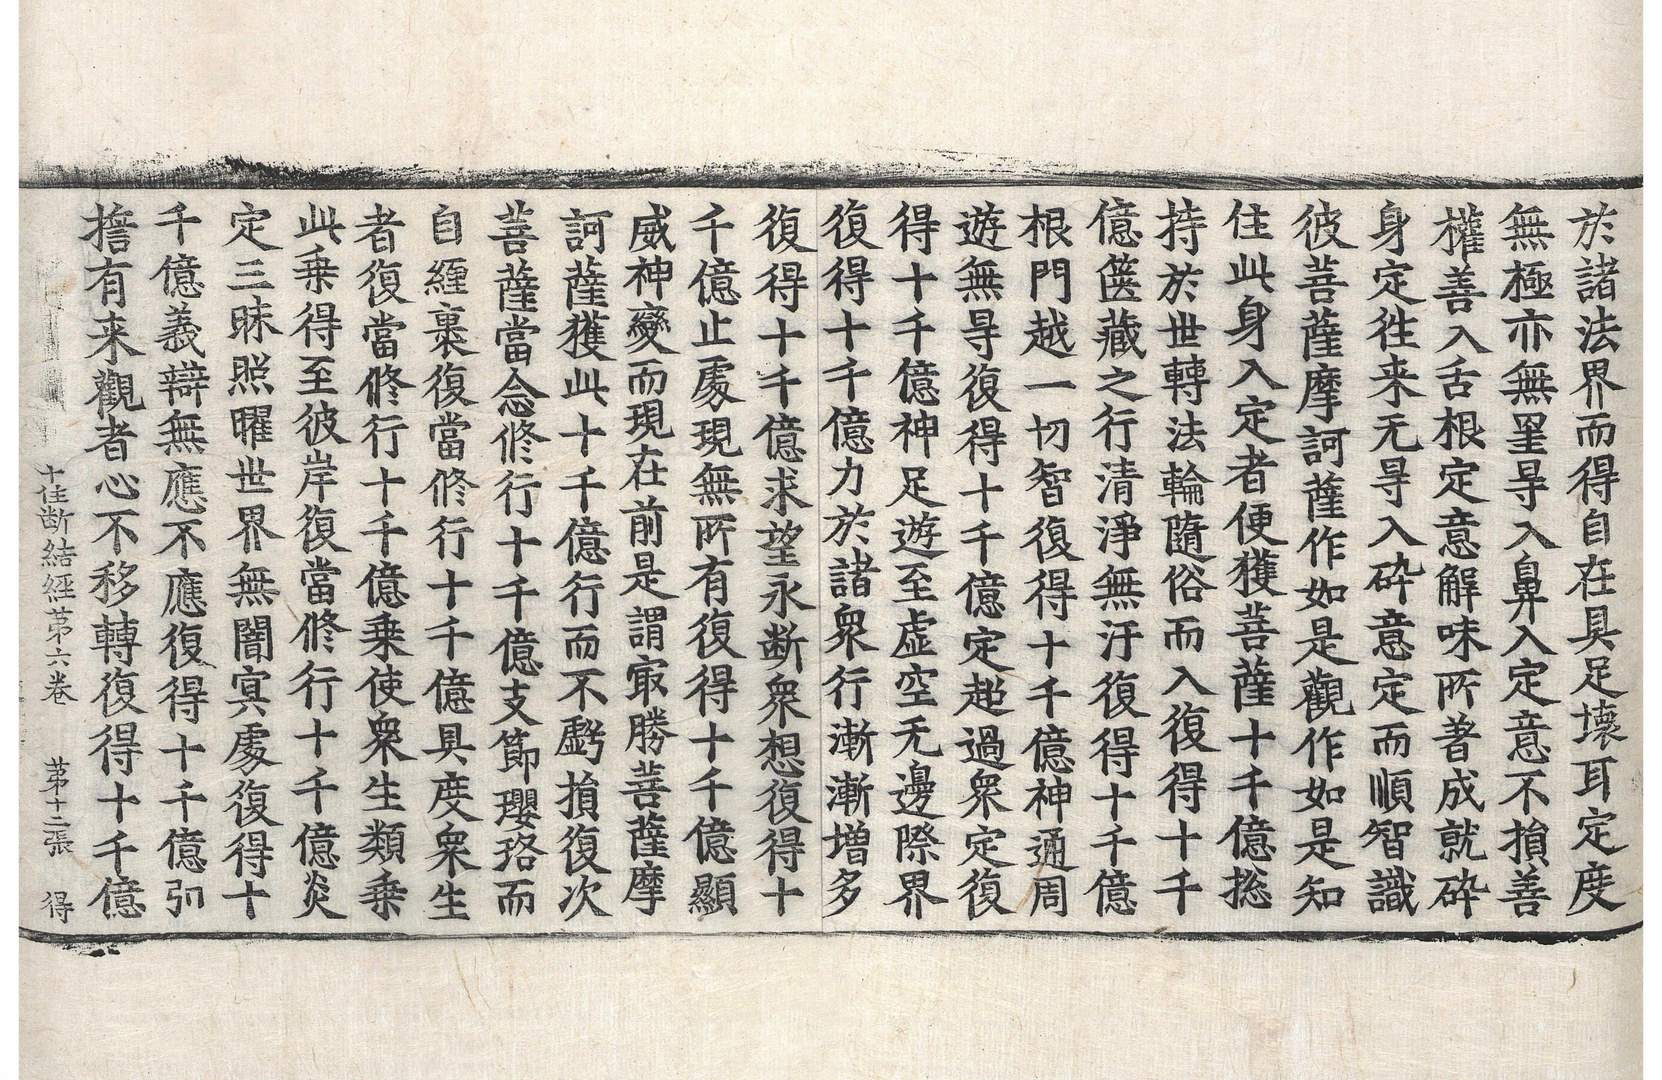 於諸法界而得自在具足壞耳定度
無極亦無罣㝵入鼻入定意不損善
權善入舌根定意解味所著成就碎
身定往来无㝵入碎意定而順智識
彼菩薩摩訶薩作如是觀作如是知
住此身入定者便獲菩薩十千億捴
持於世轉法輪隨俗而入復得十千
億篋藏之行清淨無汙復得十千億
根門越一切智復得十千億神通周
遊無㝵復得十千億定超過衆定復
得十千億神足遊至虛空无邊際界
復得十千億力於諸衆行漸漸增多
復得十千億求望永斷衆想復得十
千億止處現無所有復得十千億顯
威神變而現在前是謂㝡勝菩薩摩
訶薩獲此十千億行而不虧損復次
菩薩當念修行十千億支節瓔珞而
自纏裹復當修行十千億具度衆生
者復當修行十千億乗使衆生類乗
此乗得至彼岸復當修行十千億炎
定三昧照曜世界無闇冥處復得十
千億義辯無應不應復得十千億弘
擔有来觀者心不移轉復得十千億
十住断結經苐六卷 苐十二張 得